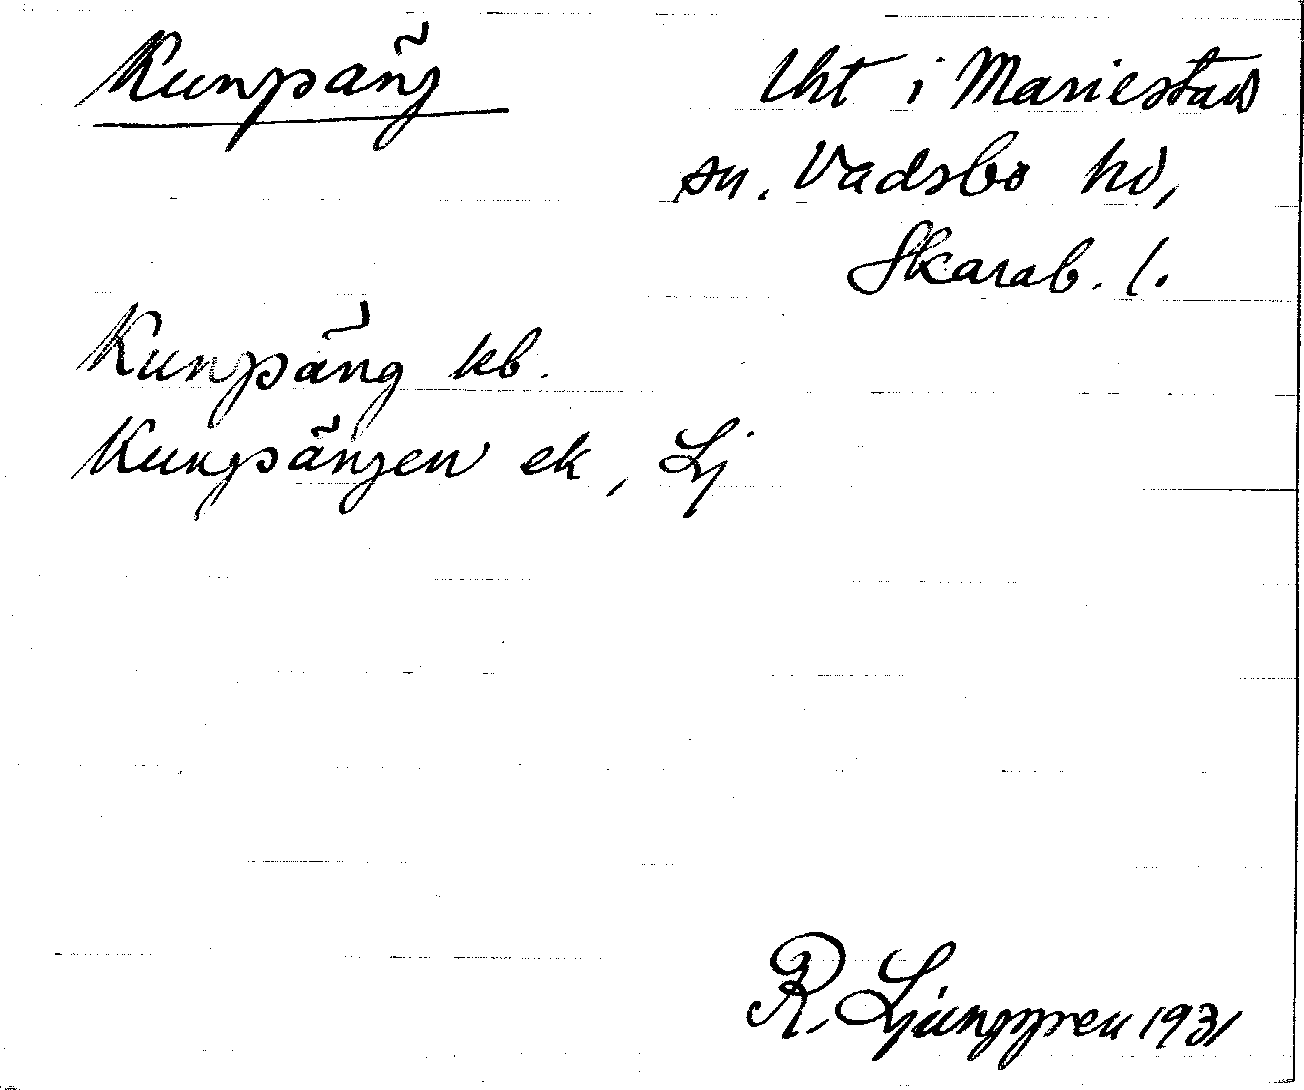 Kungsäng
i Mariestads
sn. Vadsbo hd,
Skarab. l.
Kungsäng kb.
Kungsängen ek, Lj
R. Ljunggren 1931